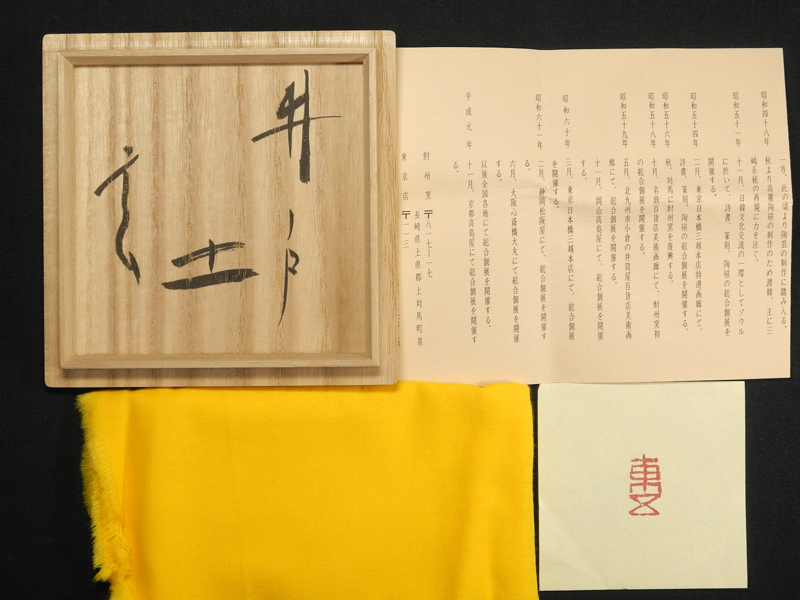 井戸
土
昭和四十八年
一方、この頃より陶芸の制作に踏み入る。
秋より高麗陶磁の制作のため渡韓、主に三
嶋正統の再現に力を注ぐ。
昭和五十一年
十一月、日韓文化交流の一環としてソウル
に於いて、詩書、篆刻、陶磁の総合個展を
開催する。
昭和五十四年
二月、東京日本橋三越本店特選画廊にて、
詩書、篆刻、陶磁の総合個展を開催する。
昭和五十六年
秋、対馬に対州窯を復興する。
昭和五十八年
十月、名鉄百貨店美術画廊にて、対州窯初
の総合個展を開催する。
昭和五十九年
五月、北九州市小倉の井筒屋百貨店美術画
廊にて、総合個展を開催する。
十一月、岡山高島屋にて、総合個展を開催
する。
昭和六十年
三月、東京日本橋三越本店にて、総合個展
を開催する。
昭和六十一年
二月、静岡松阪屋にて、総合個展を開催す
る。
六月、大阪心斎橋大丸にて総合個展を開催
する。
以後全国各地にて総合個展を開催する。
平成元年
十一月、京都高島屋にて総合個展を開催す
る。
対州窯 〒八一七ー一七
長崎県上県郡上対馬町泉
東京店 〒一一三